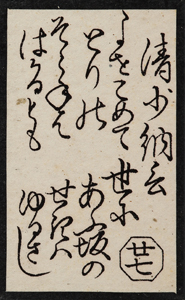 清少納言
よをこめて
とりの
そらねは
はかるとも
世に
あふ坂の
せきハ
ゆるさし
廿七